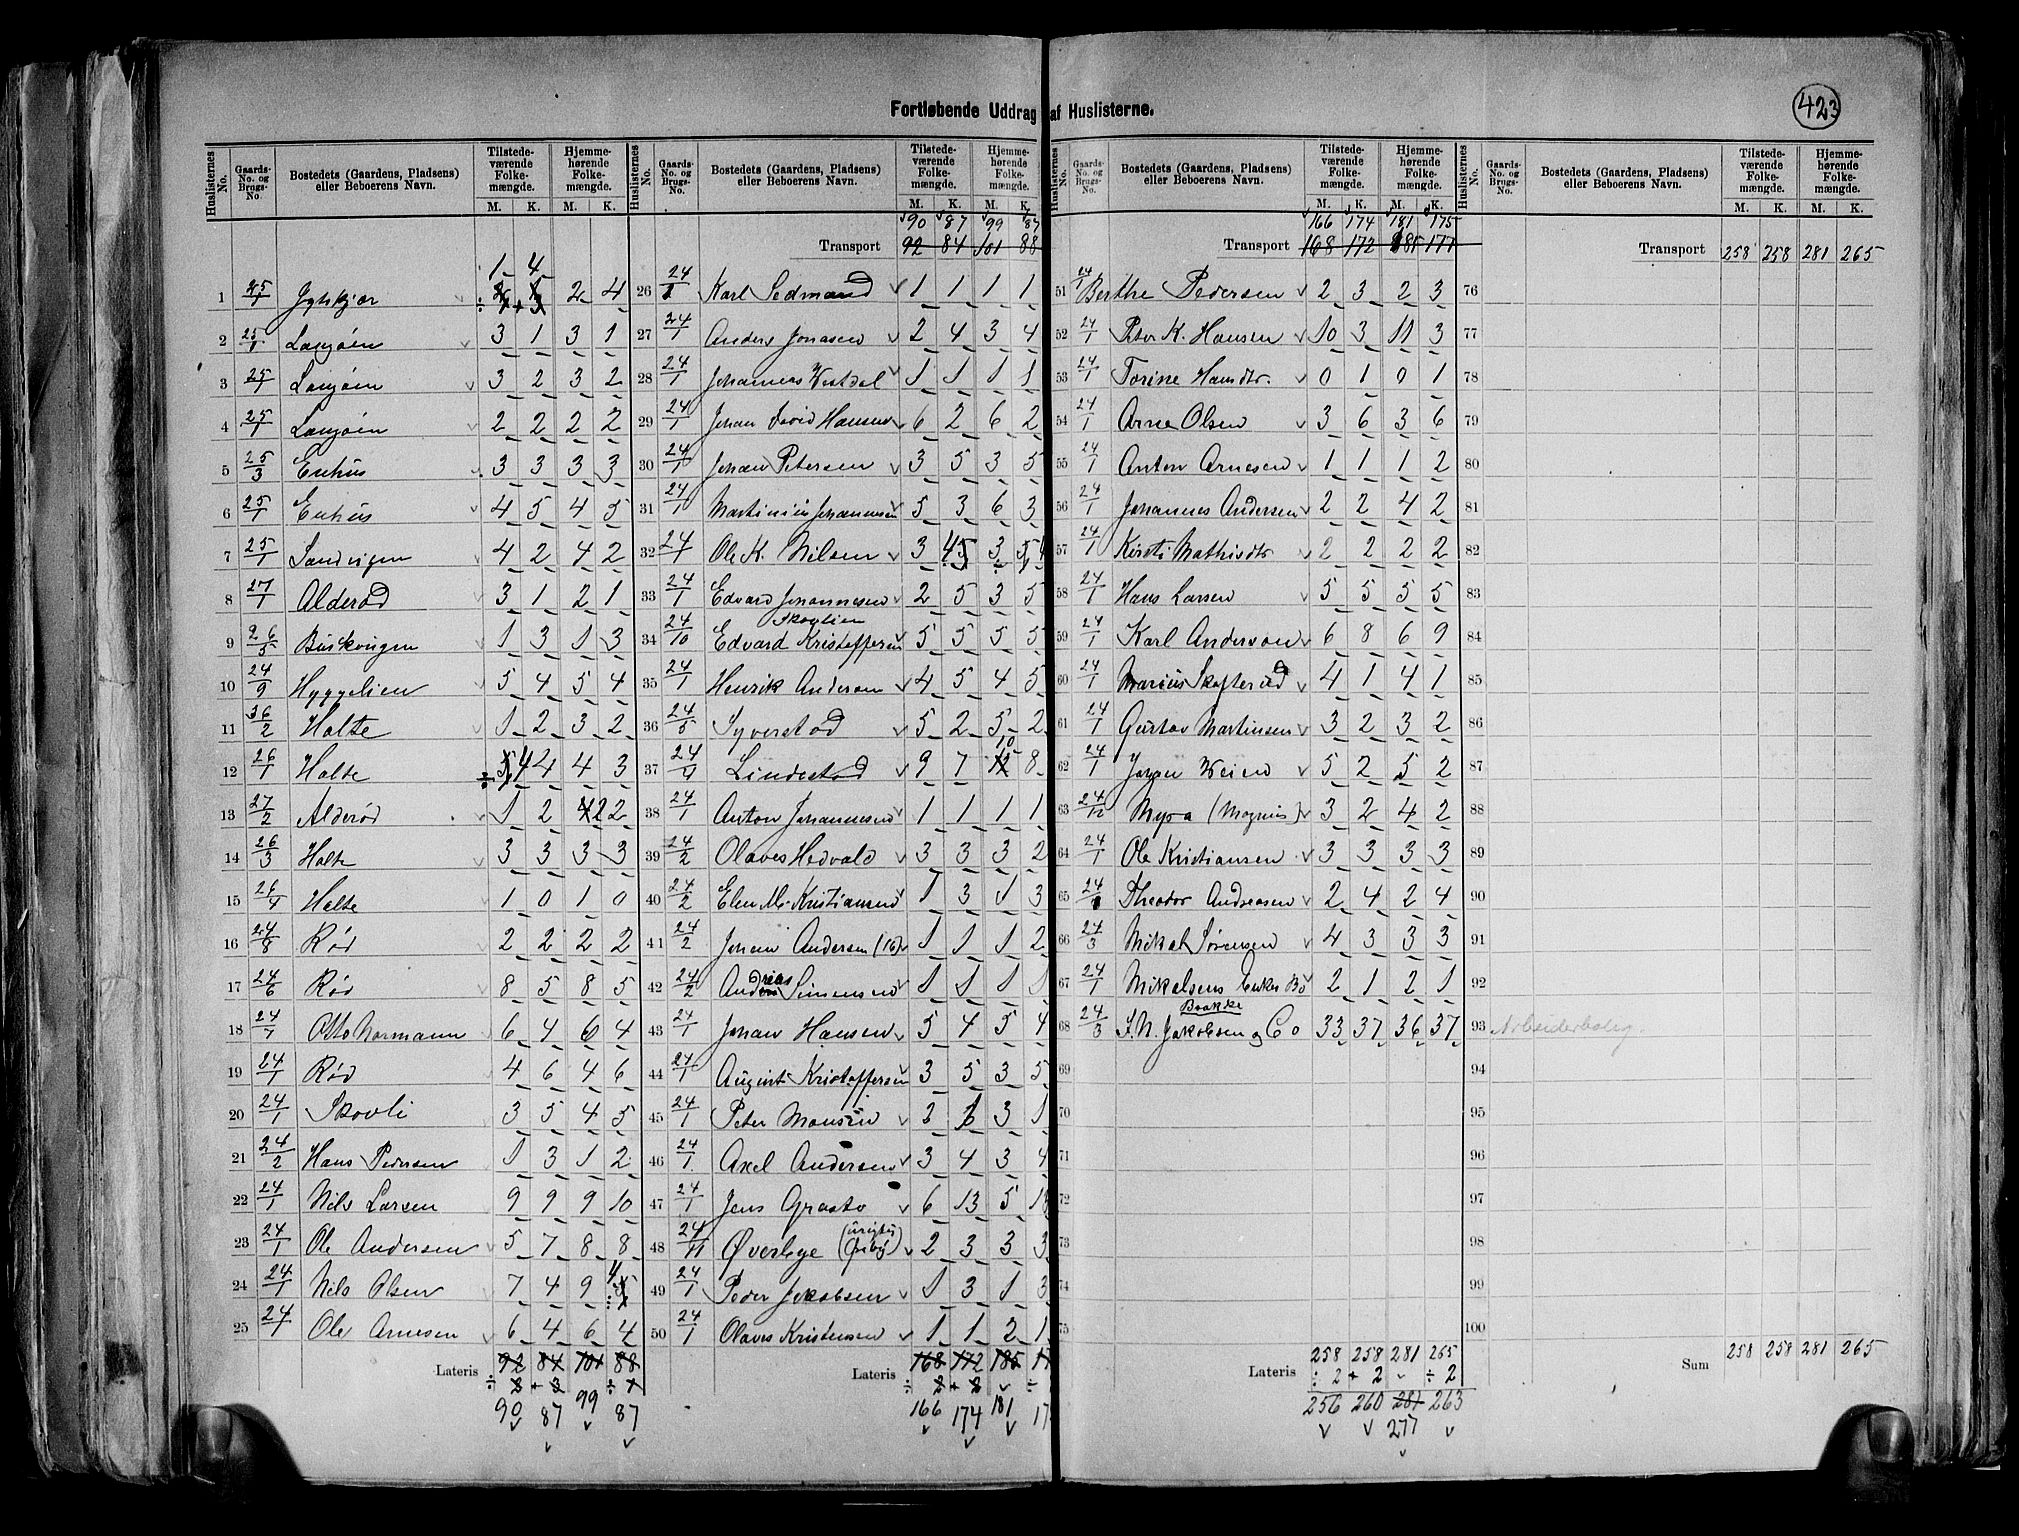 423
Fortløbende Uddrag af Huslisterne.
Huslisternes No. Gaards-No. og Brugs-No. Bostedets (Gaardens, Pladsens) eller Beboerens Navn. Tilstede-værende Folke-mængde. M. K. Hjemme-hørende Folke-mængde. M. K.
1 25/1 2 4
2 25/1 Langøen 3 1 3 1
3 25/1 Langøen 3 2 3 2
4 25/1 Langøen 2 2 2 2
5 25/3 Enhus 3 3 3 3
6 25/1 Enhus 4 5 4 5
7 25/1 Sandvigen 4 2 4 2
8 27/1 Alderød 3 1 2 1
9 26/5 Buskvigen 1 3 1 3
10 24/9 Hyggelien 5 4 5 4
11 36/2 Holte 1 2 3 2
12 26/1 Holte 4 4 4 3
13 27/2 Alderød 1 2 2 2
14 26/3 Holte 3 3 3 3
15 26/4 Holte 1 0 1 0
16 24/8 Rød 2 2 2 2
17 24/6 Rød 8 5 8 5
18 24/7 Otto Normann 6 4 6 4
19 24/1 Rød 4 6 4 6
20 24/1 Skovli 3 5 4 5
21 24/2 Hans Pedersen 1 3 1 2
22 24/1 Nils Larsen 9 9 9 10
23 24/1 Ole Andersen 5 7 8 8
24 24/1 Nils Olsen 7 4 9 4
25 24/1 Ole Arnesen 6 4 6 4
Lateris 92 84 101 88
÷ 2 + 3 ÷ 1
90 87 99 87
Huslisternes No. Gaards-No. og Brugs-No. Bostedets (Gaardens, Pladsens) eller Beboerens Navn. Tilstede-værende Folke-mængde. M. K. Hjemme-hørende Folke-mængde. M. K.
90 87 99 87
Transport 92 84 101 88
26 24/1 Karl Sedmand 1 1 1 1
27 24/1 Anders Jonasen 2 4 3 4
28 24/1 Johannes Westdal 1 1 1 1
29 24/1 Johan David Hansen 6 2 6 2
30 24/1 Johan Petersen 3 5 3 5
31 24/1 Martinius Johannesen 5 3 6 3
32 24/1 Ole K. Nilsen 3 4 5 3
33 24/1 Edvard Johannesen 2 5 3 5
Skovlien
34 24/10 Edvard Kristoffersen 5 5 5 5
35 24/1 Henrik Andersen 4 5 4 5
36 24/5 Syverstad 5 2 5 2
37 24/4 Lindestad 9 7 10 8
38 24/1 Anton Johannesen 1 1 1 1
39 24/2 Olaves Hedvald 3 3 3 2
40 24/2 Elen M. Kristiansen 1 3 1 3
41 24/2 Johan Andersen (16) 1 1 1 2
42 24/2 Andreas Simensen 1 1 1 1
43 24/1 Johan Hansen 5 4 5 4
44 24/1 August Kristoffersen 3 5 3 5
45 24/1 Peter Monsen 3 1 3 1
46 24/1 Axel Andersen 3 4 3 4
47 24/1 Jens Graato 6 13 5
48 24/11 Øverbye 2 3 3 3
49 24/1 Peder Jakobsen 1 3 1 3
50 24/1 Olaves Kristensen 1 1 2 1
Lateris 168 172 185
÷ 2 + 2 ÷
166 174 181
Huslisternes No. Gaards-No. og Brugs-No. Bostedets (Gaardens, Pladsens) eller Beboerens Navn. Tilstede-værende Folke-mængde. M. K. Hjemme-hørende Folke-mængde. M. K.
166 174 181 175
Transport 168 172 185 177
51 24/1 Berthe Pedersen 2 3 2 3
52 24/1 Peter K. Hansen 10 3 11 3
53 24/1 Torine Hansdtr. 0 1 0 1
54 24/1 Arne Olsen 3 6 3 6
55 24/1 Anton Arnesen 1 1 1 2
56 24/1 Johannes Andersen 2 2 4 2
57 24/1 Kirsti Mathisdtr 2 2 2 2
58 24/1 Hans Larsen 5 5 5 5
59 24/1 Karl Anderson 6 8 6 9
60 24/1 Marius Skofterød 4 1 4 1
61 24/1 Gustav Martinsen 3 2 3 2
62 24/1 Johan Weien 5 2 5 2
63 24/12 Myra (Magnus) 3 2 4 2
64 24/1 Ole Kristiansen 3 3 3 3
65 24/1 Theodor Andreasen 2 4 2 4
66 24/3 Mikal Sørensen 4 3 3 3
67 24/1 Mikalsens Enkes Bo 2 1 2 1
Brakke
68 24/3 S. N. Jakobsen og Co 33 37 36 37
69
70
71
72
73
74
75
Lateris 258 258 281 265
÷ 2 + 2 ÷ 2
256 260 281 263
277
Huslisternes No. Gaards-No. og Brugs-No. Bostedets (Gaardens, Pladsens) eller Beboerens Navn. Tilstede-værende Folke-mængde. M. K. Hjemme-hørende Folke-mængde. M. K.
Transport 258 258 281 265
76
77
78
79
80
81
82
83
84
85
86
87
88
89
90
91
92
93 Arbeiderbolig
94
95
96
97
98
99
100
Sum 258 258 281 265